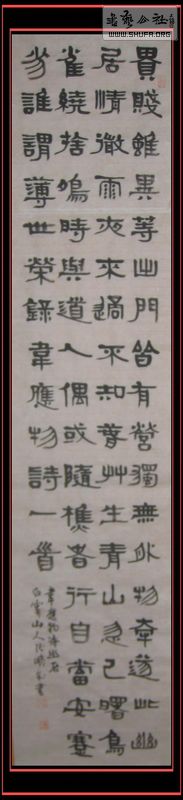 書藝公社
WWW.SHUFA.ORG
貴賤雖異等出門皆有營獨無外物牽遂此幽
居情微雨夜來過不知春艸生青山忽已曙鳥
雀繞捨鳴時與道人偶或隨樵者行自當安蹇
劣誰謂薄世榮錄韋應物詩一首
韋應物詩幽居
山人書